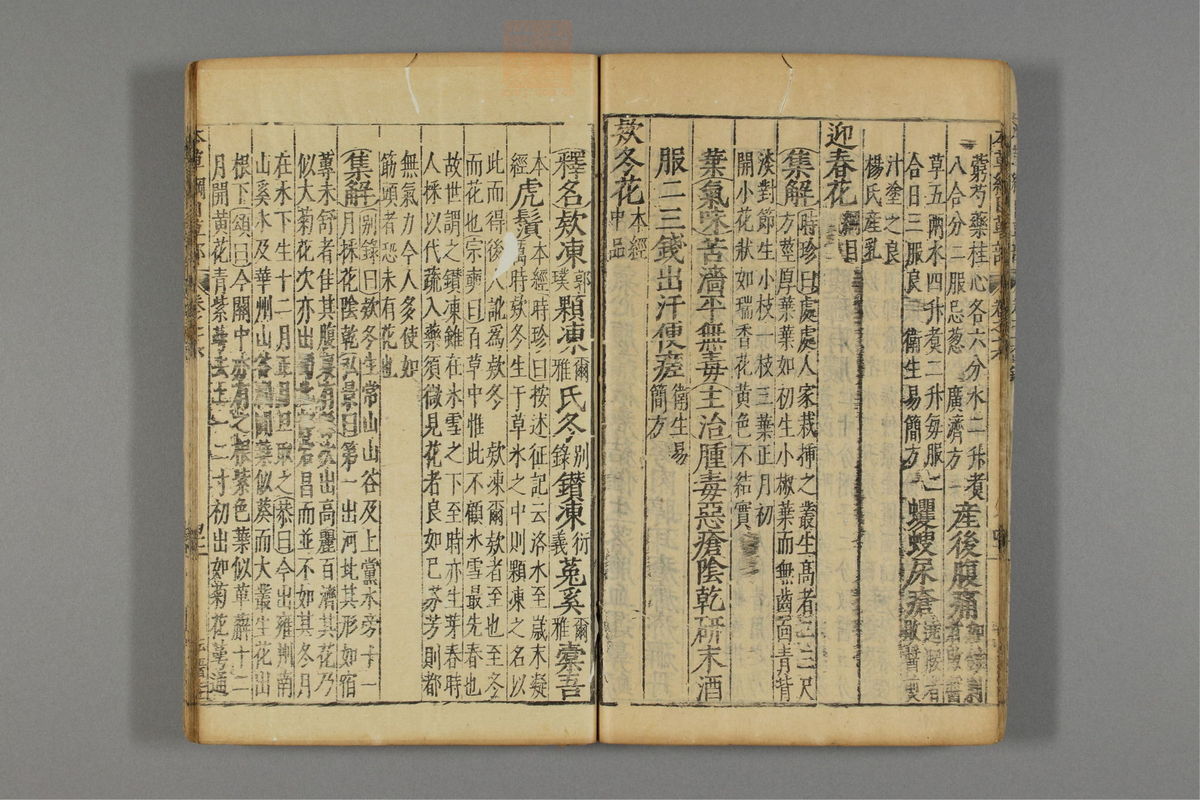 藭芍藥桂心各六分水二升煮
八合分二服忌葱 廣濟方
產後腹痛
草五兩水四升煮二升每服二
合日三服良 衛生易簡方
蠼螋尿瘡
汁塗之良
楊氏產乳
迎春花 綱目
集解 時珍曰處處人家栽揷之叢生高者二三尺
方莖厚葉葉如初生小椒葉而無齒面青背
淡對節生小枝一枝三葉正月初
開小花狀如瑞香花黃色不結實
葉氣味苦濇平無毒主治腫毒惡瘡陰乾研末酒
服二三錢出汗便瘥 衛生易簡方
欸冬花 本經中品
釋名欸凍 郭璞 顆凍 爾雅 氏冬 别錄 鑽凍 衍義 菟奚 爾雅 橐吾
本經 虎鬚 本經時珍曰按述征記云洛水至歲末凝
厲時欸冬生于草氷之中則顆凍之名以
此而得後人訛爲欸冬 欸凍爾欸者至也至冬
而花也宗奭曰百草中惟此不顧氷雪最先春也
故世謂之鑽凍雖在氷雪之下至時亦生芽春時
人採以代蔬入藥須微見花者良如已芬芳則都
無氣力今人多使如
筯頭者恐未有花也
集解 别錄曰欸冬生常山山谷及上黨水旁十一
月採花陰乾弘景曰第一出河北其形如宿
蓴未舒者佳其腹裏有絲次出高麗百濟其花乃
似大菊花次亦出蜀北宕昌而並不如其冬月
在氷下生十二月正月旦取之恭曰今出雍州南
山溪水及華州山谷澗間葉似葵而大叢生花出
根下頌曰今關中亦有之根紫色葉似萆薢十二
月開黃花青紫萼去土一二寸初出如菊花萼通